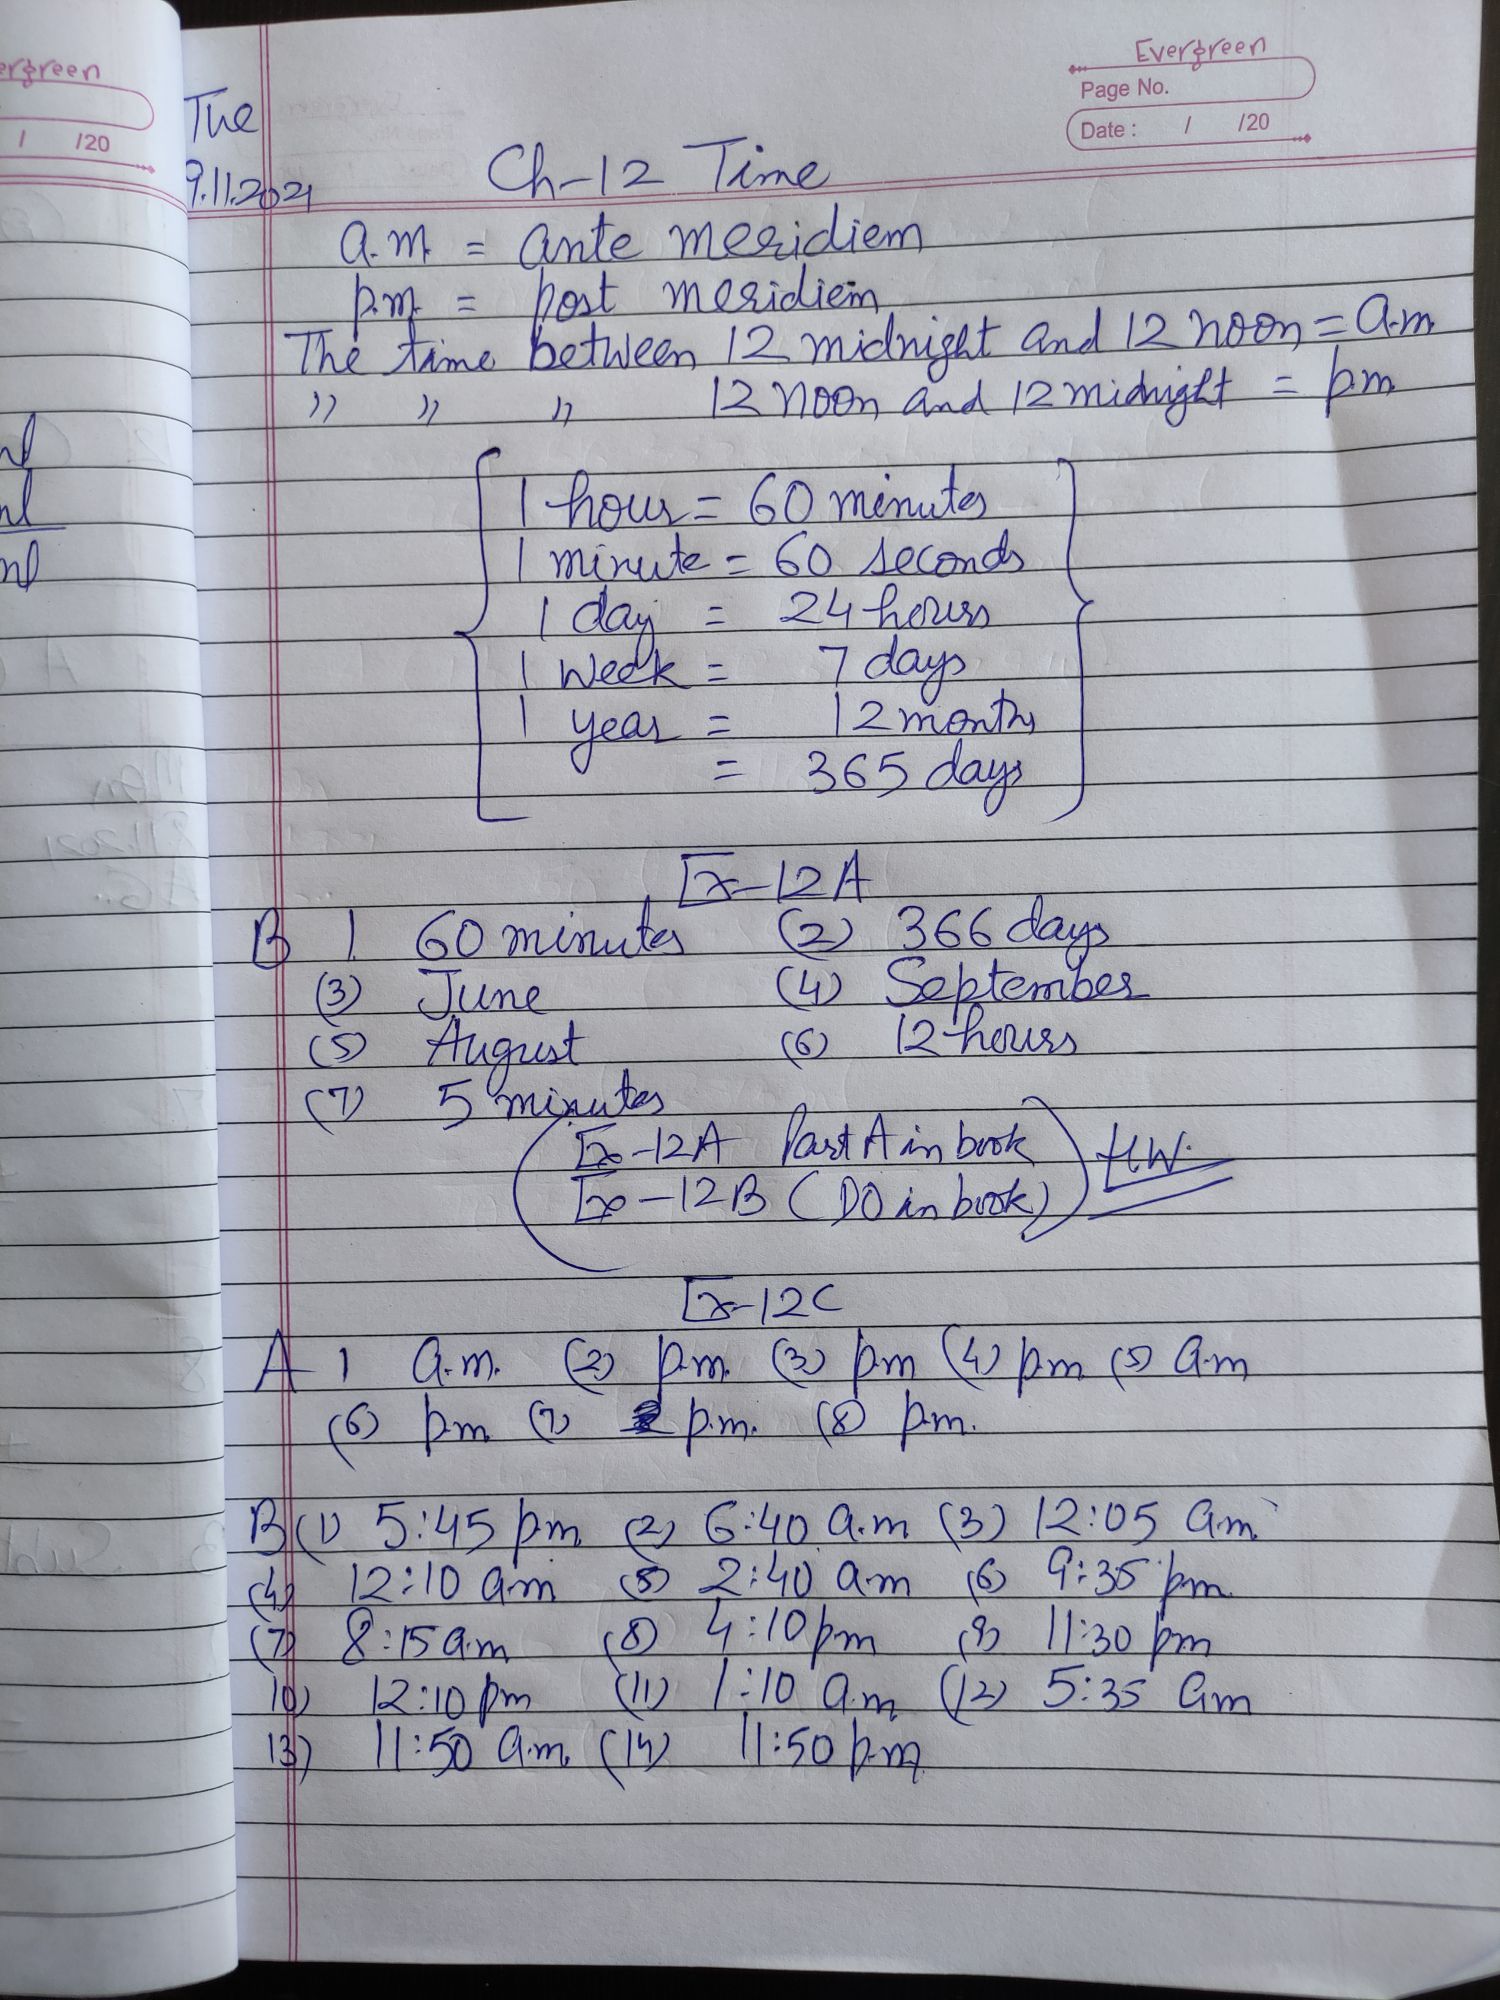 ergreen
/ /20
nl
nl
nl
Evergreen
Page No.
Date : / /20
Tue
9.11.2021
Ch-12 Time
a.m. = ante meridiem
p.m. = post meridiem
The time between 12 midnight and 12 noon = a.m.
" " " 12 noon and 12 midnight = p.m.
1 hour = 60 minutes
1 minute = 60 seconds
1 day = 24 hours
1 week = 7 days
1 year = 12 months
= 365 days
Ex-12A
B 1. 60 minutes (2) 366 days
(3) June (4) September
(5) August (6) 12 hours
(7) 5 minutes
Ex-12A Part A in book
Ex-12B (DO in book) H.W.
Ex-12C
A 1 a.m. (2) p.m. (3) pm (4) pm (5) a.m
(6) p.m. (7) p.m. (8) p.m.
B (1) 5:45 pm (2) 6:40 a.m (3) 12:05 a.m.
(4) 12:10 am (5) 2:40 am (6) 9:35 pm.
(7) 8:15 a.m (8) 4:10 pm (9) 11:30 pm
10) 12:10 pm (11) 1:10 a.m (12) 5:35 am
13) 11:50 a.m. (14) 11:50 p.m.